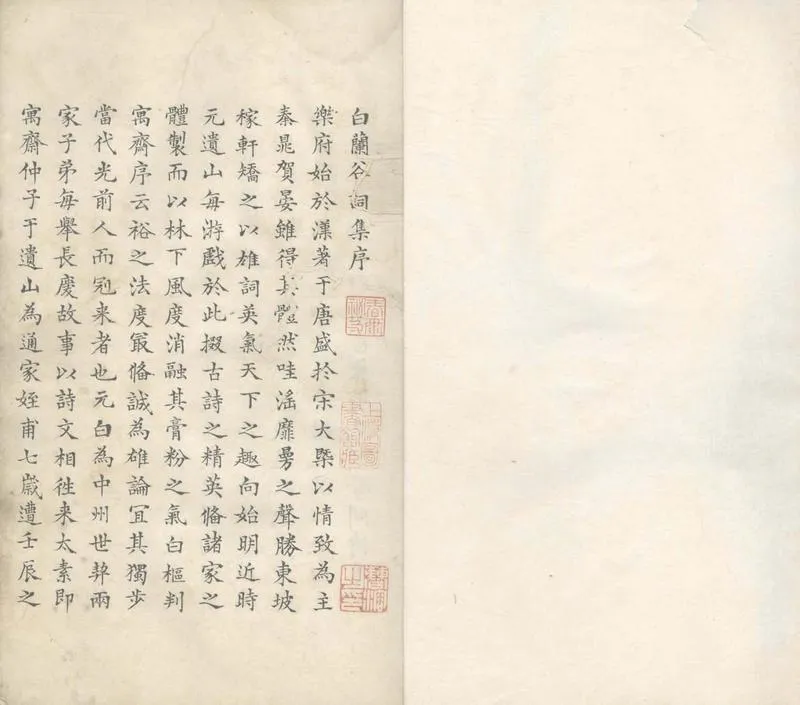 白蘭谷詞集序
樂府始於漢著于唐盛於宋大槩以情致為主
秦晁賀晏雖得其體然哇滛靡曼之聲勝東坡
稼軒矯之以雄詞英氣天下之趣向始明近時
元遺山每游戲於此掇古詩之精英俻諸家之
體製而以林下風度消融其膏粉之氣白樞判
寓齋序云裕之法度㝡俻誠為雄論冝其獨步
當代光前人而冠来者也元白為中州世契兩
家子弟每舉長慶故事以詩文相徃来太素即
寓齋仲子于遺山為通家姪甫七歲遭壬辰之